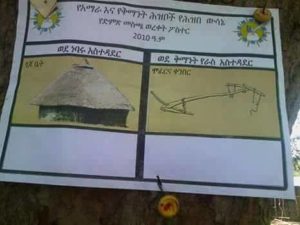 የአማራ እና የቅማንት ሕዝቦች የሕዝበ ውሳኔ
የድምጽ መስጫ ወረቀት ፖስተር
2010 ዓ.ም
ወደ ነባሩ አስተዳደር
ወደ ቅማንት የራስ አስተዳደር
ጎጆ ቤት
ሞፈርና ቀንበር